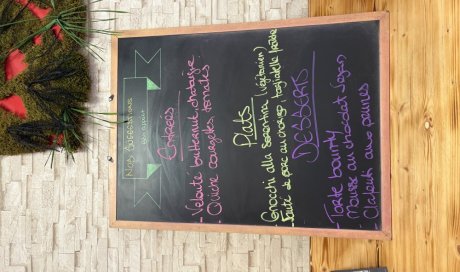 NOS SUGGESTIONS
Entrées
- Velouté butternut chataigne
- Quiche courgettes tomates
Plats
- Gnocchi alla sorentina (végétarien)
- Sauté de porc au chorizo, tagliatelle fraîche
DESSERTS
- Tarte bounty
- Mousse au chocolat
- Clafouti aux prunes